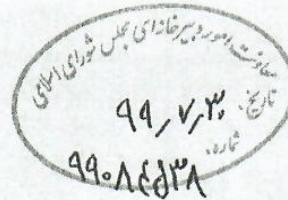 معاونت امور دبیرخانه‌ای مجلس شورای اسلامی
تاریخ: ۹۹/۷/۳۰
شماره: ۹۹۰۸۴۵۳۸